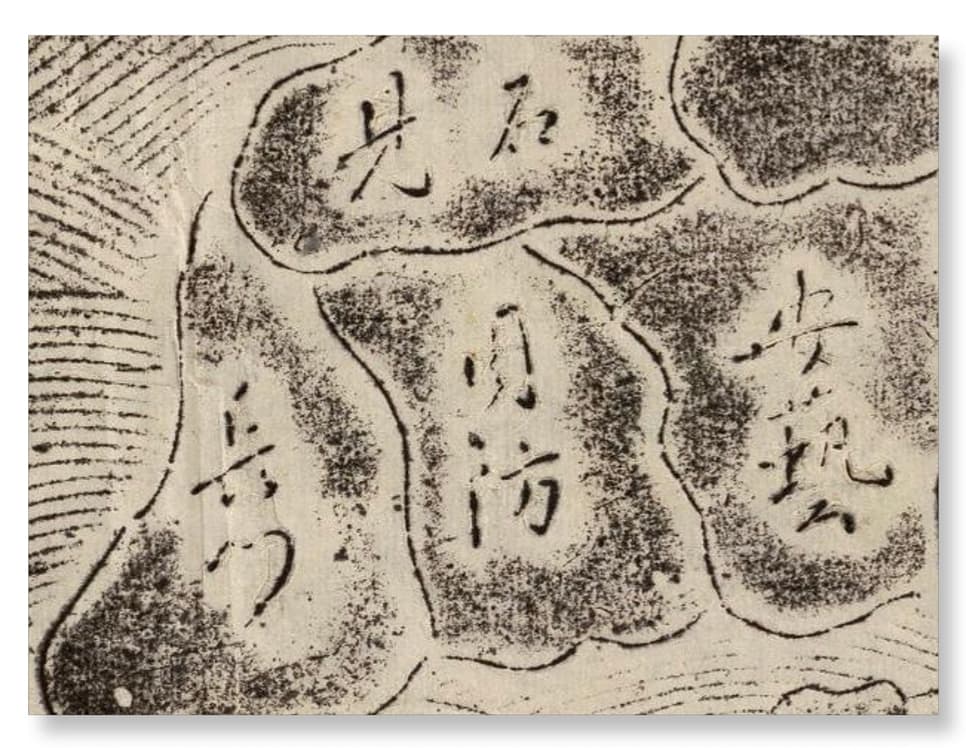 石見
安藝
周防
長門